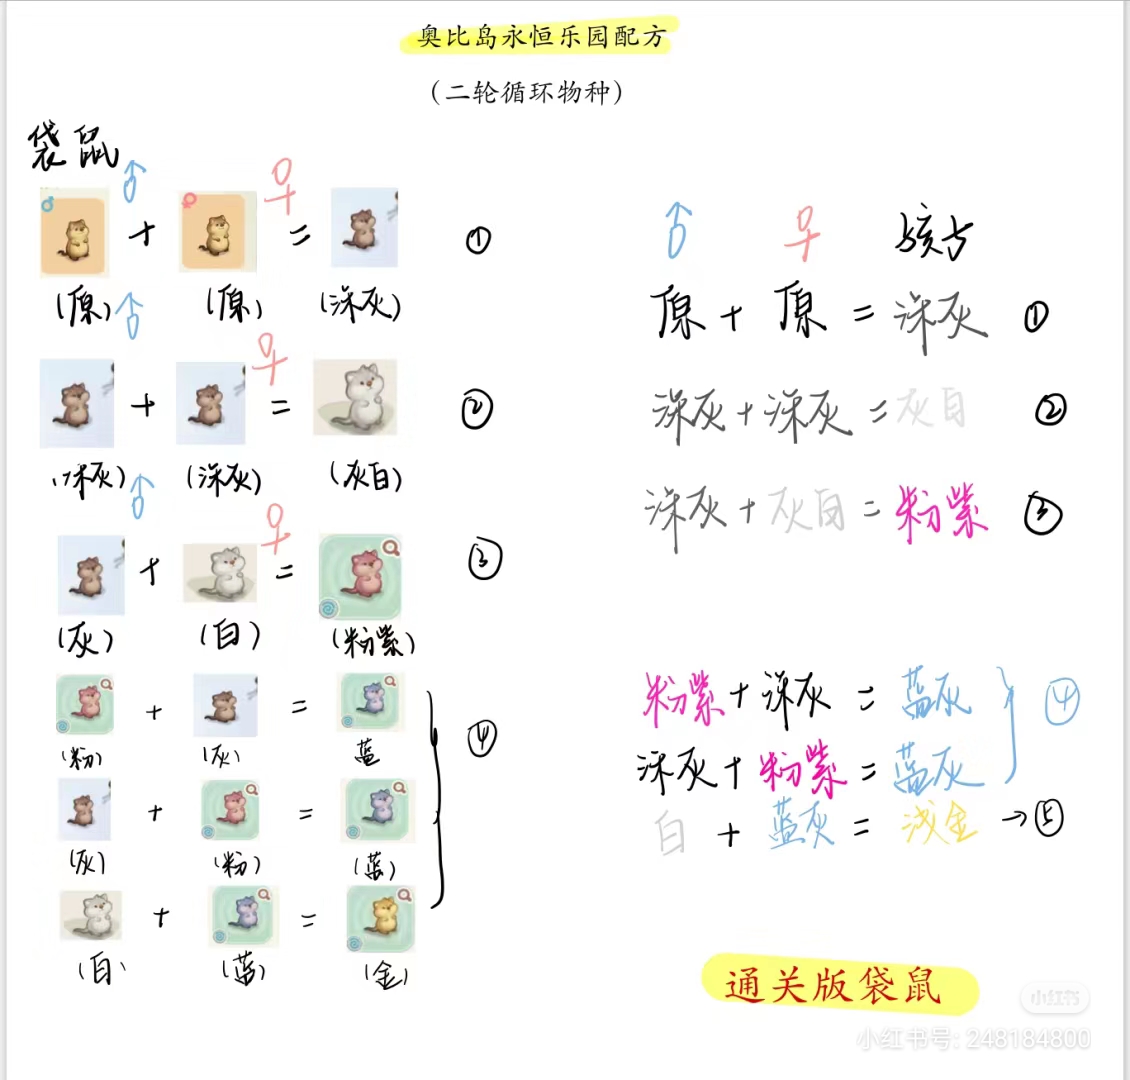 奥比岛永恒乐园配方
（二轮循环物种）
袋鼠
♂ ♀
+ = ①
（原） （原） （深灰）
♂ ♀
+ = ②
（深灰） （深灰） （灰白）
♂ ♀
+ = ③
（灰） （白） （粉紫）
+ =
（粉） （灰） 蓝
④
+ =
（灰） （粉） （蓝）
+ =
（白） （蓝） （金）
♂ ♀ 孩子
原 + 原 = 深灰 ①
深灰 + 深灰 = 灰白 ②
深灰 + 灰白 = 粉紫 ③
粉紫 + 深灰 = 蓝灰 ④
深灰 + 粉紫 = 蓝灰
白 + 蓝灰 = 浅金 → ⑤
通关版袋鼠
小红书
小红书号: 248184800